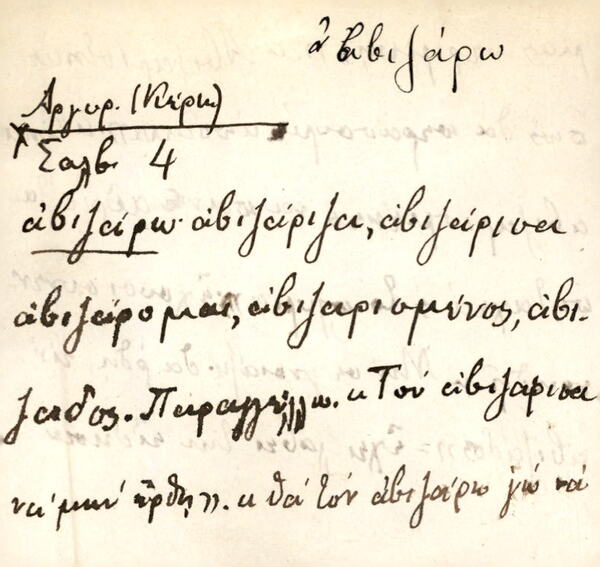 ἀβιζάρω
Ἀργυρ. (Κέρκ)
Σαλβ. 4
ἀβιζάρω ἀβιζάριζα, ἀβιζάρισα
ἀβιζάρομαι, ἀβιζαρισμένος, ἀβι-
ζάδος. Παραγγέλλω. «Τὸν ἀβιζάρισα
νὰ μὴν ἔρθῃ». «Θὰ τὸν ἀβιζάρω γιὰ νὰ